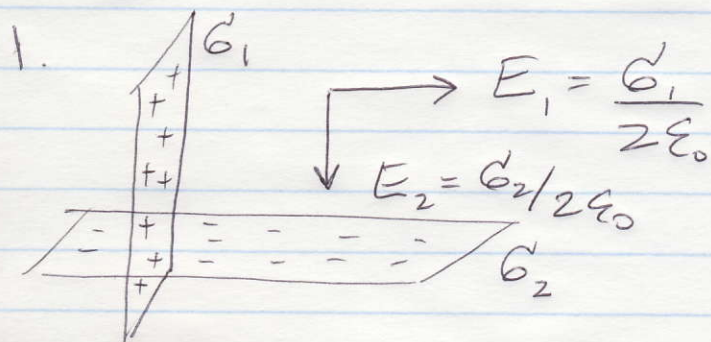 1.
σ₁
E₁ = σ₁ / 2ε₀
E₂ = σ₂/2ε₀
σ₂